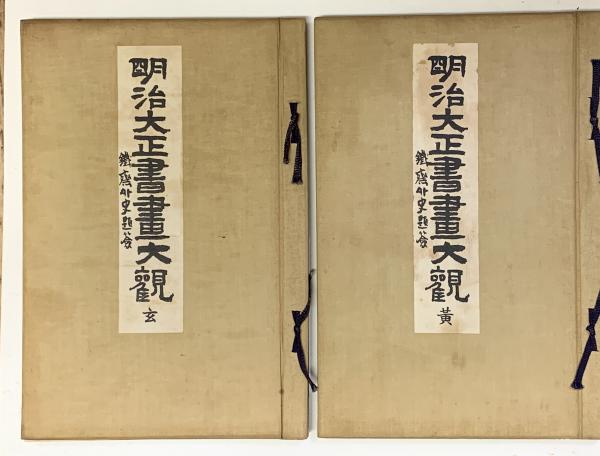 明治大正書畫大觀
鐵齋外史題簽
玄
明治大正書畫大觀
鐵齋外史題簽
黃